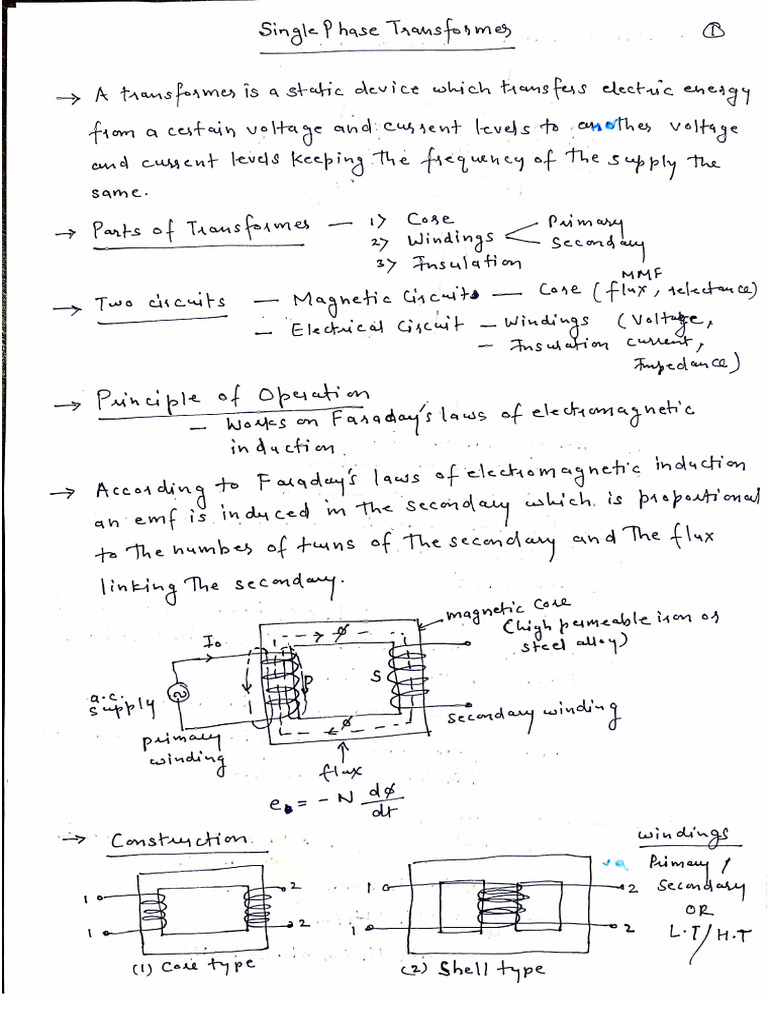 Single Phase Transformer
1
→ A transformer is a static device which transfers electric energy
from a certain voltage and current levels to another voltage
and current levels keeping the frequency of the supply the
same.
→ Parts of Transformer — 1) Core
2) Windings < Primary
Secondary
3) Insulation
→ Two circuits — Magnetic Circuit — Core (flux, MMF, reluctance)
— Electrical Circuit — Windings (Voltage,
— Insulation Current,
Impedance)
→ Principle of Operation
— Works on Faraday's laws of electromagnetic
induction.
→ According to Faraday's laws of electromagnetic induction
an emf is induced in the secondary which is proportional
to the number of turns of the secondary and the flux
linking the secondary.
magnetic core
(high permeable iron or
steel alloy)
I₀
ϕ
P
S
a.c.
supply
primary
winding
ϕ
secondary winding
flux
e = - N dϕ/dt
→ Construction
windings
Primary /
Secondary
OR
L.T/H.T
1 2
1 2
(1) Core type
1 2
1 2
(2) Shell type